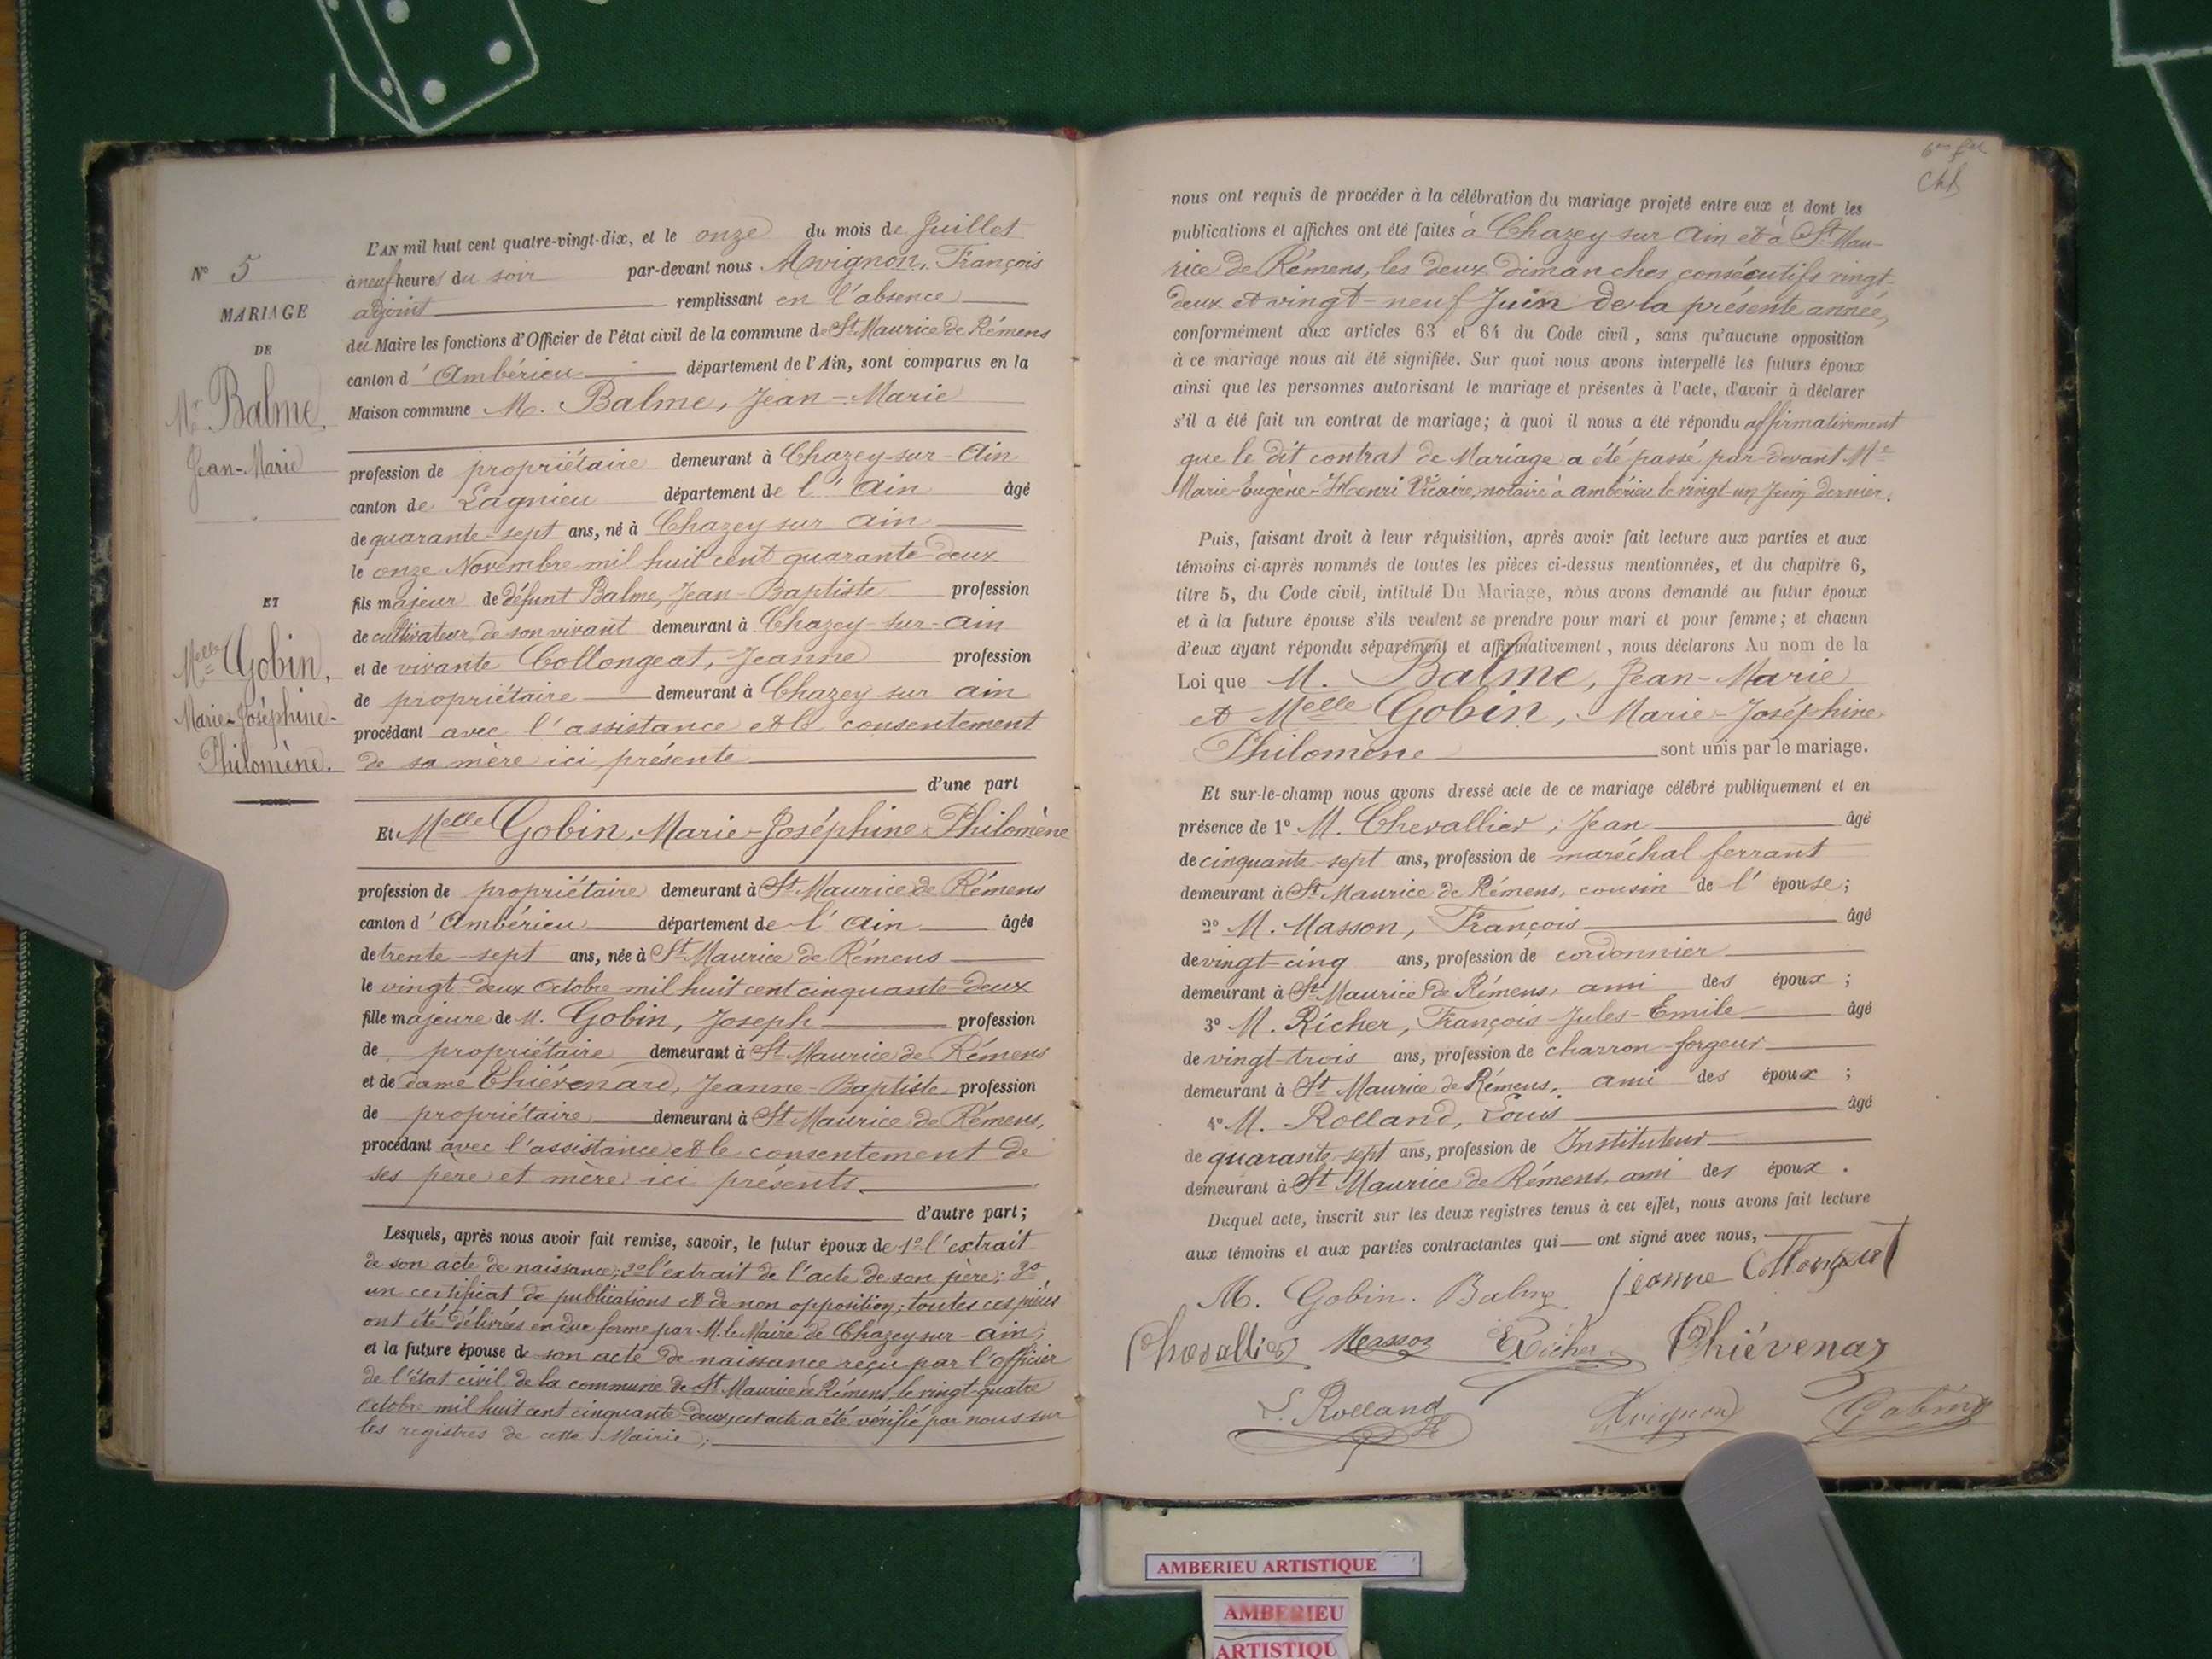 N° 5
MARIAGE
DE
Mr Balme,
Jean-Marie
ET
Melle Gobin,
Marie-Joséphine-
Philomène.
L'AN mil huit cent quatre-vingt-dix, et le onze du mois de Juillet
à neuf heures du soir par-devant nous Avignon, François
adjoint remplissant en l'absence
du Maire les fonctions d'Officier de l'état civil de la commune de St Maurice de Rémens
canton d'Ambérieu département de l'Ain, sont comparus en la
Maison commune M. Balme, Jean-Marie
profession de propriétaire demeurant à Chazey-sur-Ain
canton de Lagnieu département de l'Ain âgé
de quarante-sept ans, né à Chazey sur Ain
le onze Novembre mil huit cent quarante-deux
fils majeur de défunt Balme, Jean-Baptiste profession
de cultivateur, de son vivant demeurant à Chazey-sur-Ain
et de vivante Collongeat, Jeanne profession
de propriétaire demeurant à Chazey sur ain
procédant avec l'assistance et le consentement
de sa mère ici présente
d'une part
Et Melle Gobin, Marie-Joséphine Philomène
profession de propriétaire demeurant à St Maurice de Rémens
canton d'Ambérieu département de l'Ain âgée
de trente-sept ans, née à St Maurice de Rémens
le vingt-deux Octobre mil huit cent cinquante-deux
fille majeure de M. Gobin, Joseph profession
de propriétaire demeurant à St Maurice de Rémens
et de dame Thiévenard, Jeanne-Baptiste profession
de propriétaire demeurant à St Maurice de Rémens,
procédant avec l'assistance et le consentement de
ses père et mère ici présents
d'autre part;
Lesquels, après nous avoir fait remise, savoir, le futur époux de 1° l'extrait
de son acte de naissance; 2° l'extrait de l'acte de son père; 3°
un certificat de publications et de non opposition; toutes ces pièces
ont été délivrées en due forme par M. le Maire de Chazey sur-ain;
et la future épouse de son acte de naissance reçu par l'officier
de l'état civil de la commune de St Maurice de Rémens, le vingt-quatre
Octobre mil huit cent cinquante-deux, cet acte a été vérifié par nous sur
les registres de cette Mairie;
nous ont requis de procéder à la célébration du mariage projeté entre eux et dont les
publications et affiches ont été faites à Chazey sur Ain et à St Mau-
rice de Rémens, les deux dimanches consécutifs vingt-
deux et vingt-neuf Juin de la présente année,
conformément aux articles 63 et 64 du Code civil, sans qu'aucune opposition
à ce mariage nous ait été signifiée. Sur quoi nous avons interpellé les futurs époux
ainsi que les personnes autorisant le mariage et présentes à l'acte, d'avoir à déclarer
s'il a été fait un contrat de mariage; à quoi il nous a été répondu affirmativement
que le dit contrat de Mariage a été passé par-devant Me
Marie-Eugène-Henri Vicaire, notaire à ambérieu le vingt-un Juin dernier.
Puis, faisant droit à leur réquisition, après avoir fait lecture aux parties et aux
témoins ci-après nommés de toutes les pièces ci-dessus mentionnées, et du chapitre 6,
titre 5, du Code civil, intitulé Du Mariage, nous avons demandé au futur époux
et à la future épouse s'ils veulent se prendre pour mari et pour femme; et chacun
d'eux ayant répondu séparément et affirmativement, nous déclarons Au nom de la
Loi que M. Balme, Jean-Marie
et Melle Gobin, Marie-Joséphine
Philomène sont unis par le mariage.
Et sur-le-champ nous avons dressé acte de ce mariage célébré publiquement et en
présence de 1° M. Chevallier, Jean âgé
de cinquante-sept ans, profession de maréchal ferrant
demeurant à St Maurice de Rémens, cousin de l'épouse;
2° M. Masson, François âgé
de vingt-cinq ans, profession de cordonnier
demeurant à St Maurice de Rémens, ami des époux;
3° M. Richer, François-Jules-Emile âgé
de vingt-trois ans, profession de charron-forgeur
demeurant à St Maurice de Rémens, ami des époux;
4° M. Rolland, Louis âgé
de quarante-sept ans, profession de Instituteur
demeurant à St Maurice de Rémens, ami des époux.
Duquel acte, inscrit sur les deux registres tenus à cet effet, nous avons fait lecture
aux témoins et aux parties contractantes qui ont signé avec nous,
M. Gobin. Balme jeanne Collongeat
Chevallier Masson Richer Thiévenaz
L. Rolland Avignon Gobin
AMBERIEU ARTISTIQUE
AMBERIEU
ARTISTIQU